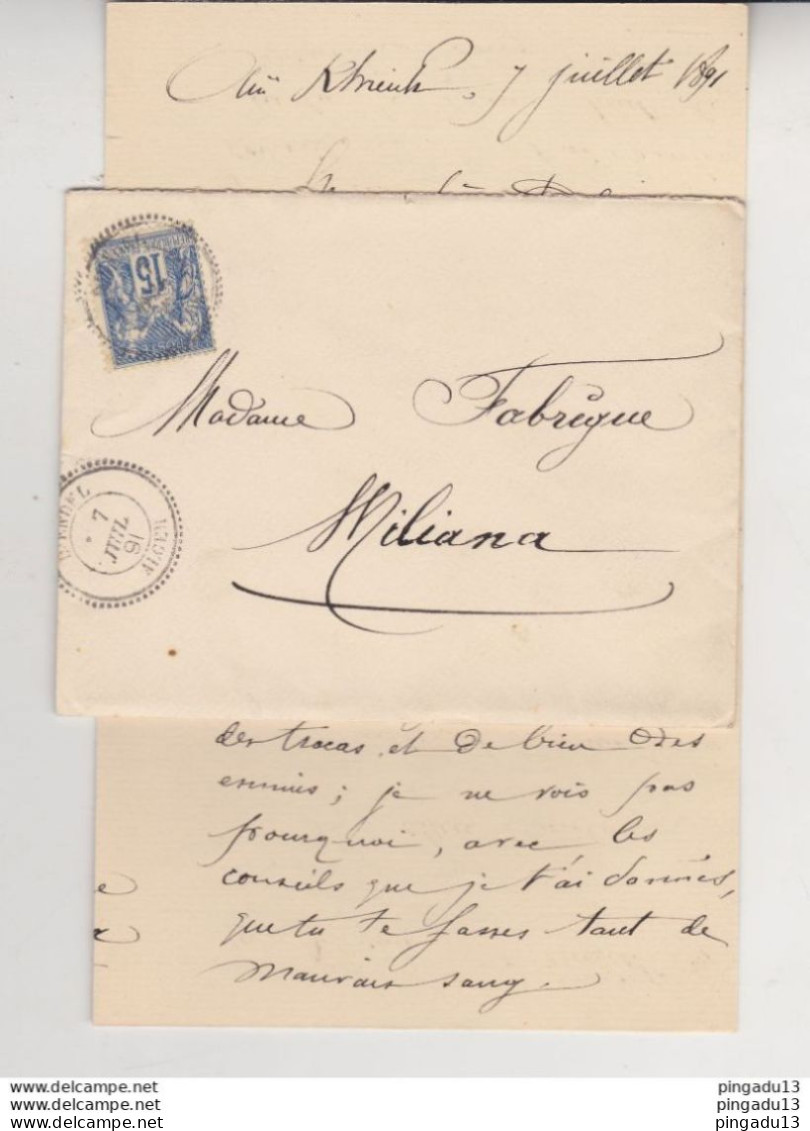 7 juillet 1891
15
Madame Fabrègue
Miliana
7
JUIL
91
ALGER
des tracas et de bien des
ennuis ; je ne vois pas
pourquoi, avec les
conseils que je t'ai donnés,
que tu te fasses tant de
mauvais sang.
delcampe.net
pingadu13
delcampe.net
pingadu13
delcampe.net
pingadu13